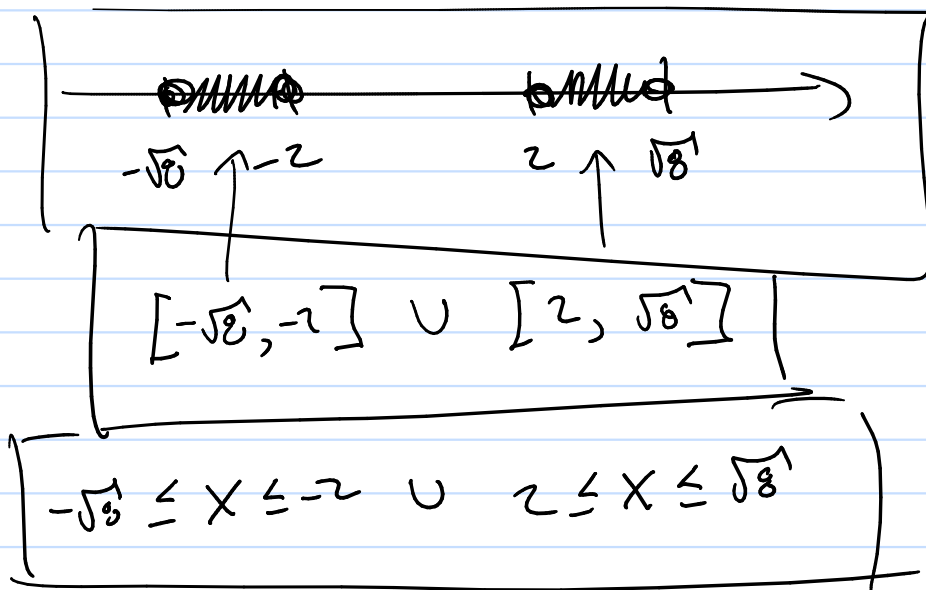 -√8 -2 2 √8
[-√8, -2] ∪ [2, √8]
-√8 ≤ X ≤ -2 ∪ 2 ≤ X ≤ √8